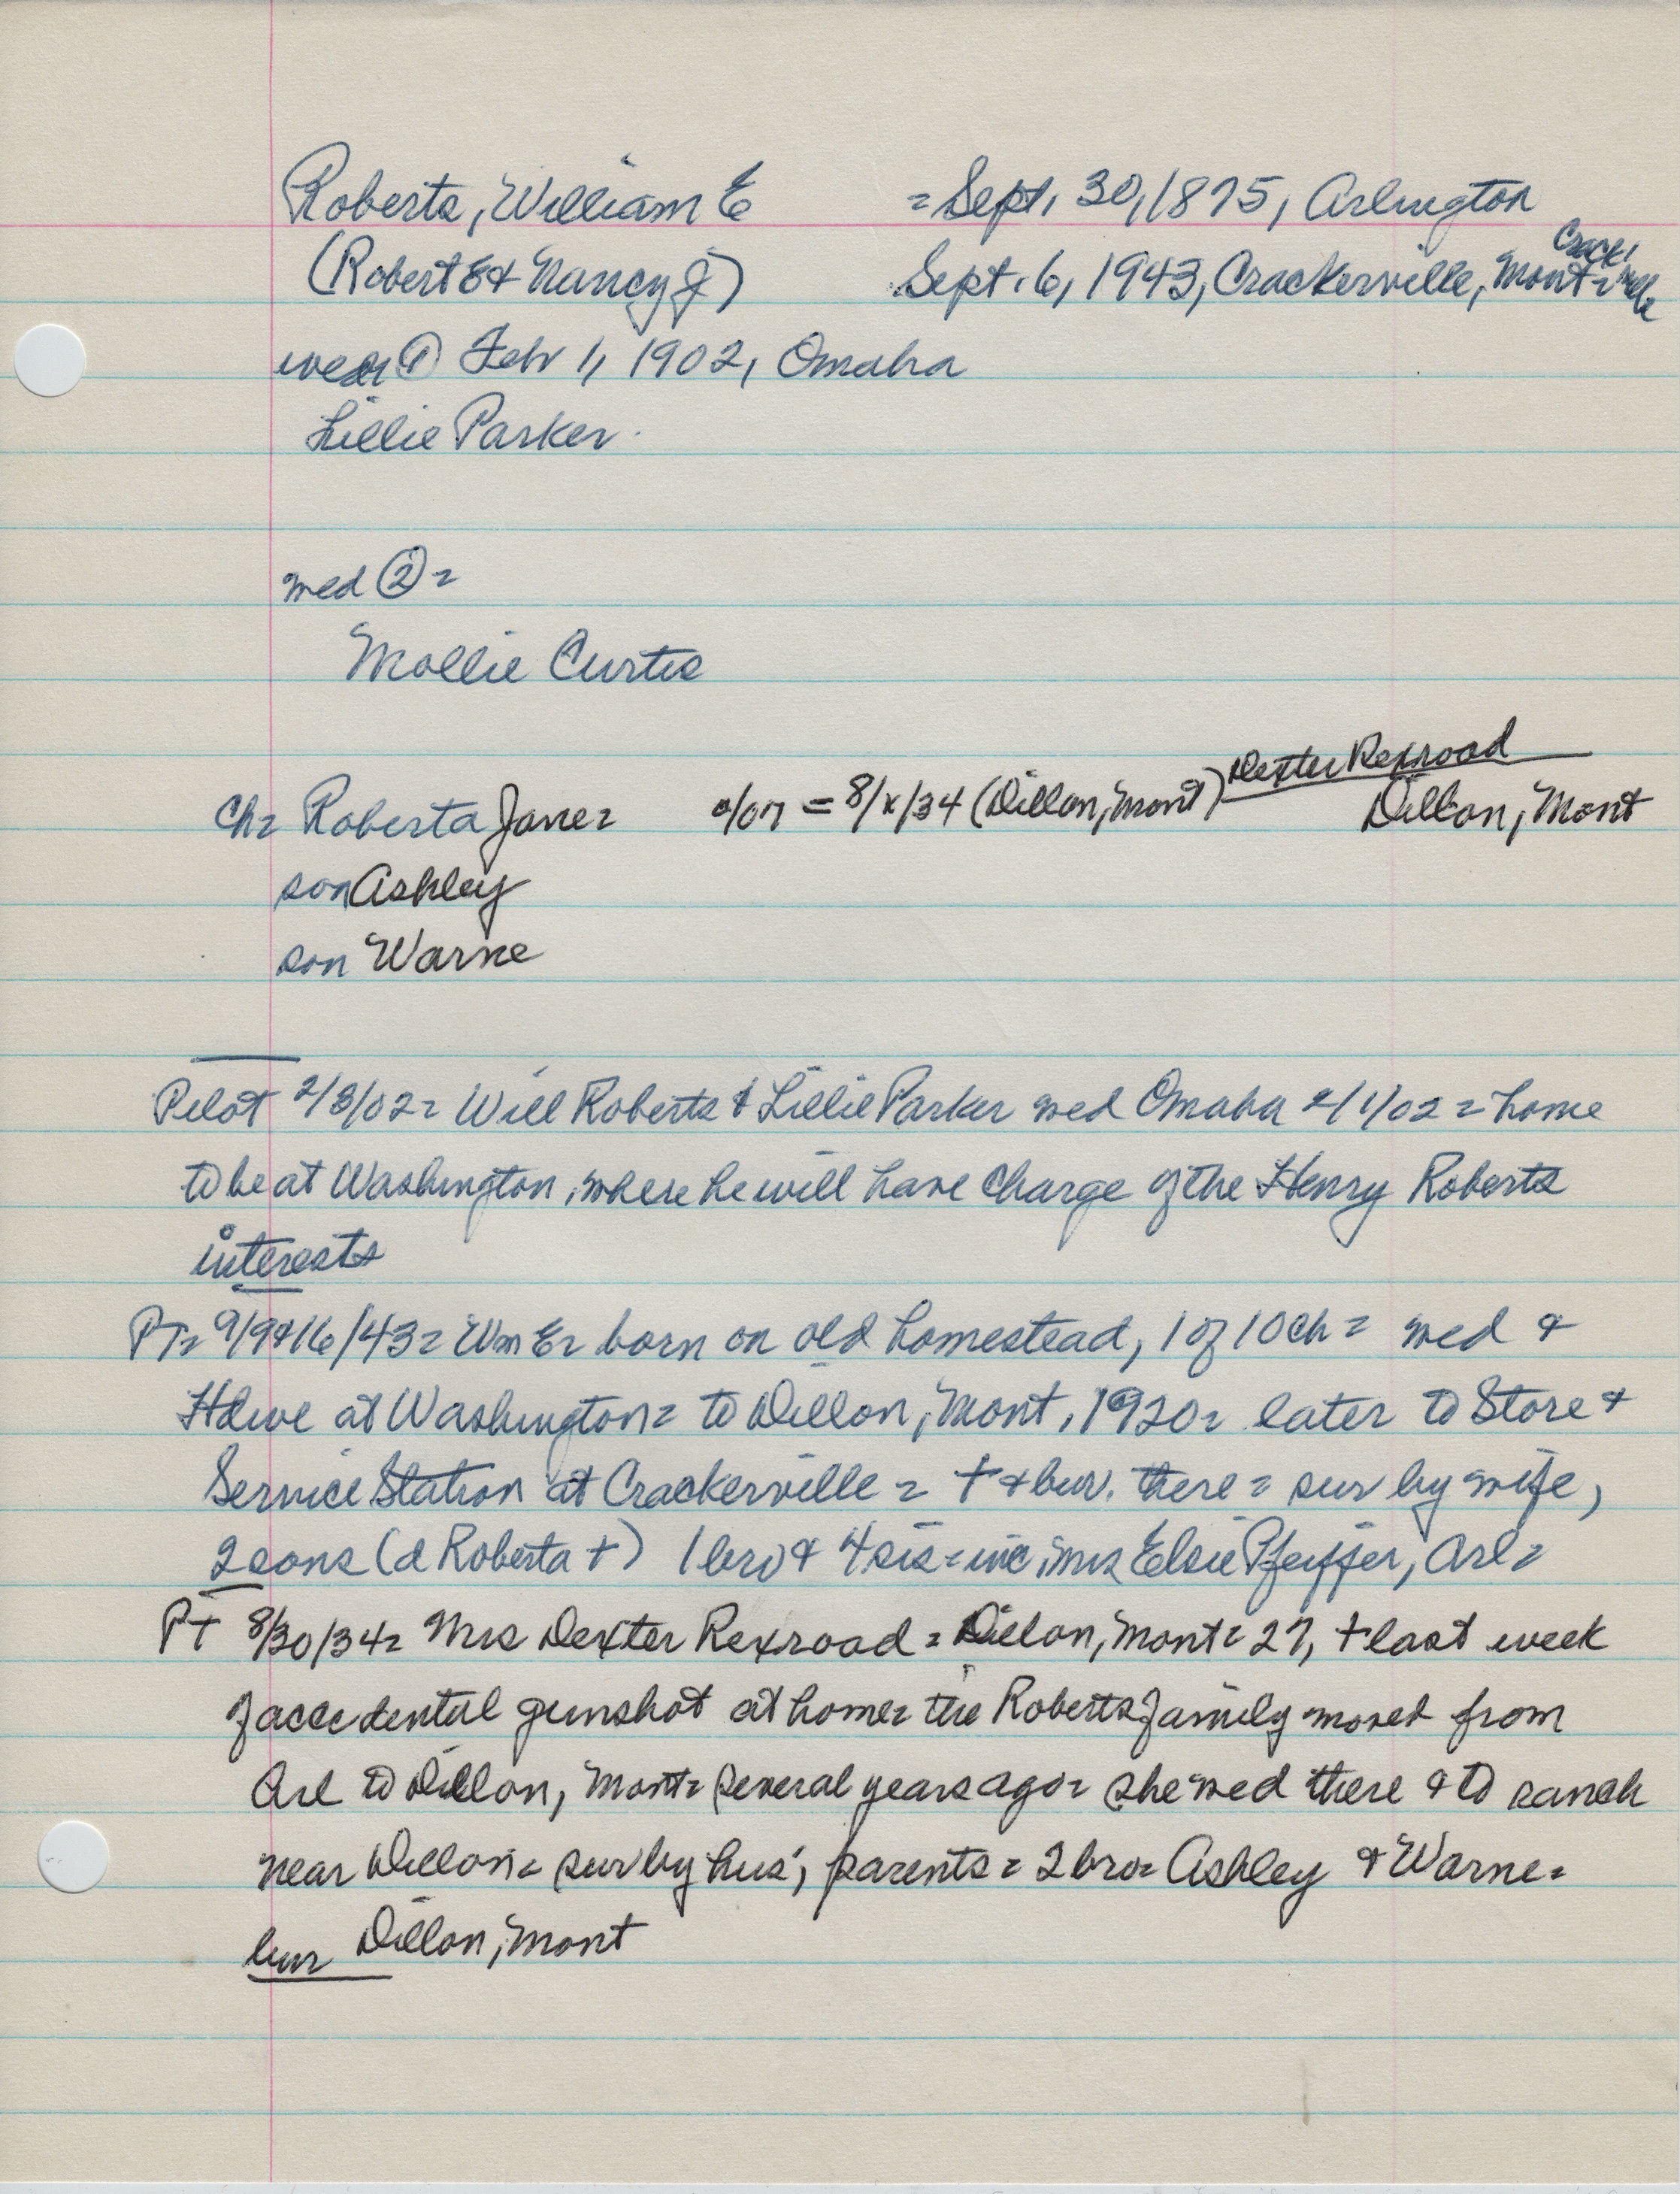 Roberts, William E = Sept. 30, 1875, Arlington
(Robert E & Nancy J) Sept. 6, 1943, Crackerville, Mont =
wed ① Feb 1, 1902, Omaha
Lillie Parker
wed ② =
Mollie Curtis
Ch = Roberta Jane = c/07 = 8/x/34 (Dillon, Mont) Dexter Rexroad
Dillon, Mont
son Ashley
son Warne
Pilot 2/3/02 = Will Roberts & Lillie Parker wed Omaha 2/1/02 = home
to be at Washington, where he will have charge of the Henry Roberts
interests
PT = 9/9 & 16/43 = Wm E = born on old homestead, 1 of 10 ch = wed &
Hdwe at Washington = to Dillon, Mont, 1920 = later to Store &
Service Station at Crackerville = + & bur. there = sur by wife,
2 sons (d Roberta +) 1 bro & 4 sis = inc, Mrs Elsie Pfeiffer, Arl =
PT 8/30/34 = Mrs Dexter Rexroad = Dillon, Mont = 27, + last week
of accidental gunshot at home = the Roberts family moved from
Arl to Dillon, Mont = several years ago = she wed there & to ranch
near Dillon = sur by hus, parents = 2 bro = Ashley & Warne =
bur Dillon, Mont